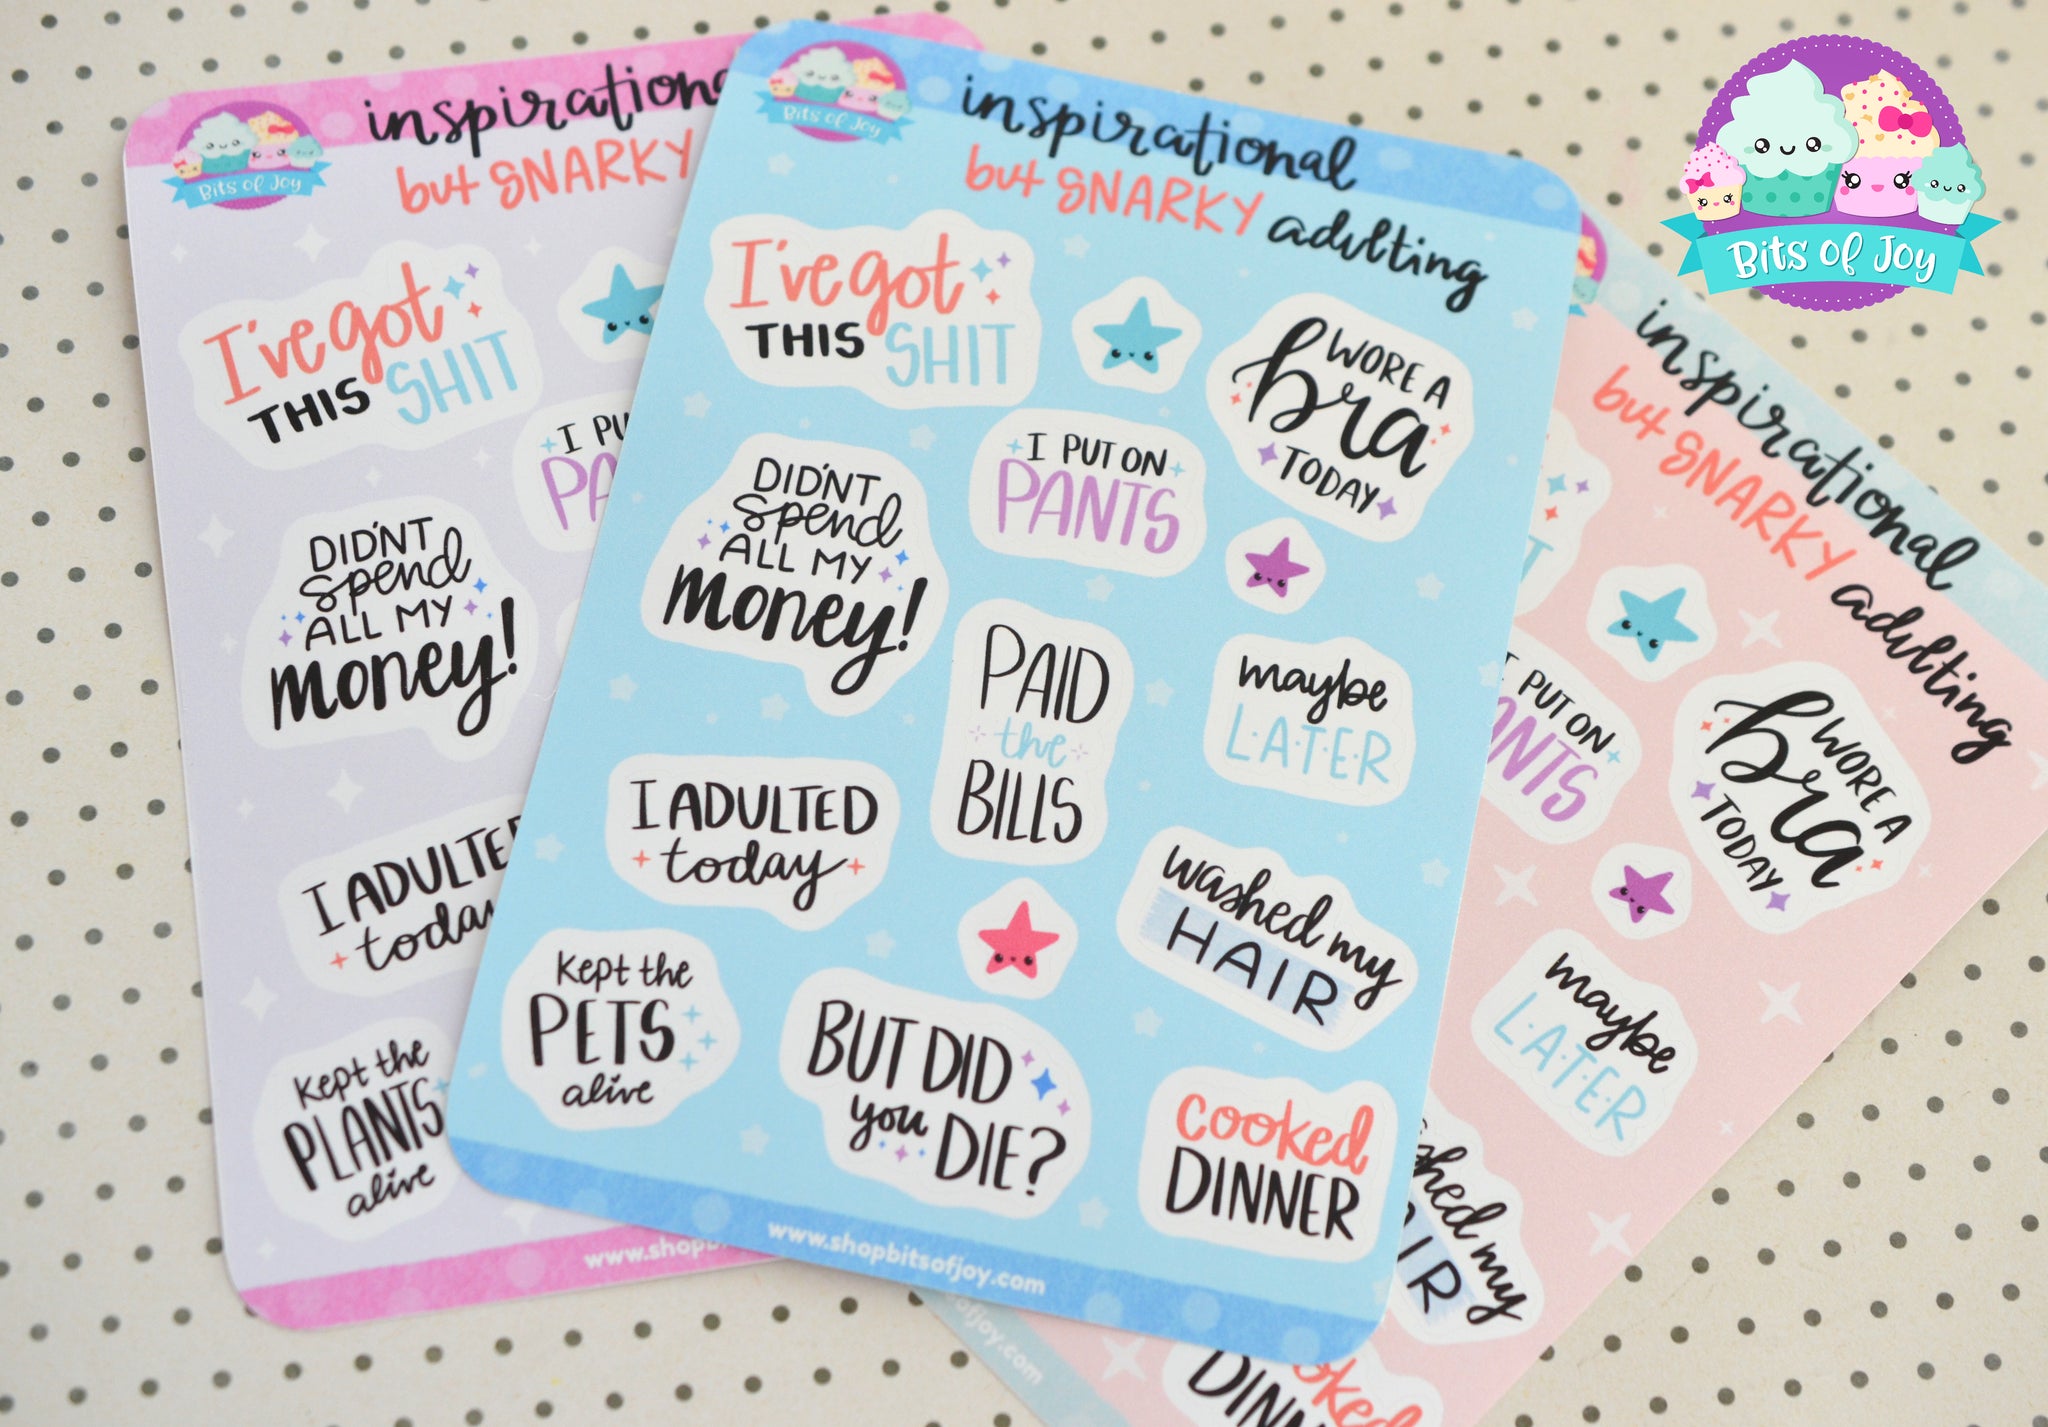 inspirational
but SNARKY
Bits of Joy
I've got
THIS SHIT
I PU
PA
DIDN'T
spend
ALL MY
money!
I ADULTE
today
kept the
PLANTS
alive
www.shopbi
inspirational
but SNARKY adulting
Bits of Joy
I've got
THIS SHIT
WORE A
bra
TODAY
I PUT ON
PANTS
DIDN'T
spend
ALL MY
money!
PAID
the
BILLS
maybe
LATER
I ADULTED
today
washed my
HAIR
kept the
PETS
alive
BUT DID
you DIE?
cooked
DINNER
www.shopbitsofjoy.com
Bits of Joy
inspirational
but SNARKY adulting
I PUT ON
ANTS
WORE A
bra
TODAY
maybe
LATER
shed my
IR
oked
DINN
ofjoy.com